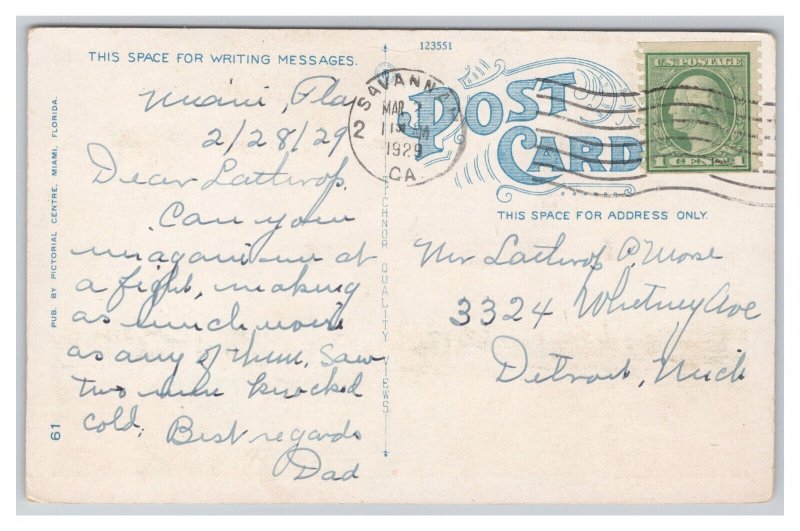 THIS SPACE FOR WRITING MESSAGES.
123551
POST CARD
THIS SPACE FOR ADDRESS ONLY.
U.S. POSTAGE
1 CENT 1
SAVANNAH
MAR 1
PM
1929
GA.
2
PUB. BY PICTORIAL CENTRE, MIAMI, FLORIDA.
61
TICHNOR QUALITY VIEWS
Miami, Fla
2/28/29
Dear Lathrop.
Can you
imagine me at
a fight, making
as much noise
as any of them. Saw
two men knocked
cold. Best regards
Dad
Mr Lathrop P. Morse
3324 Whitney Ave
Detroit, Mich